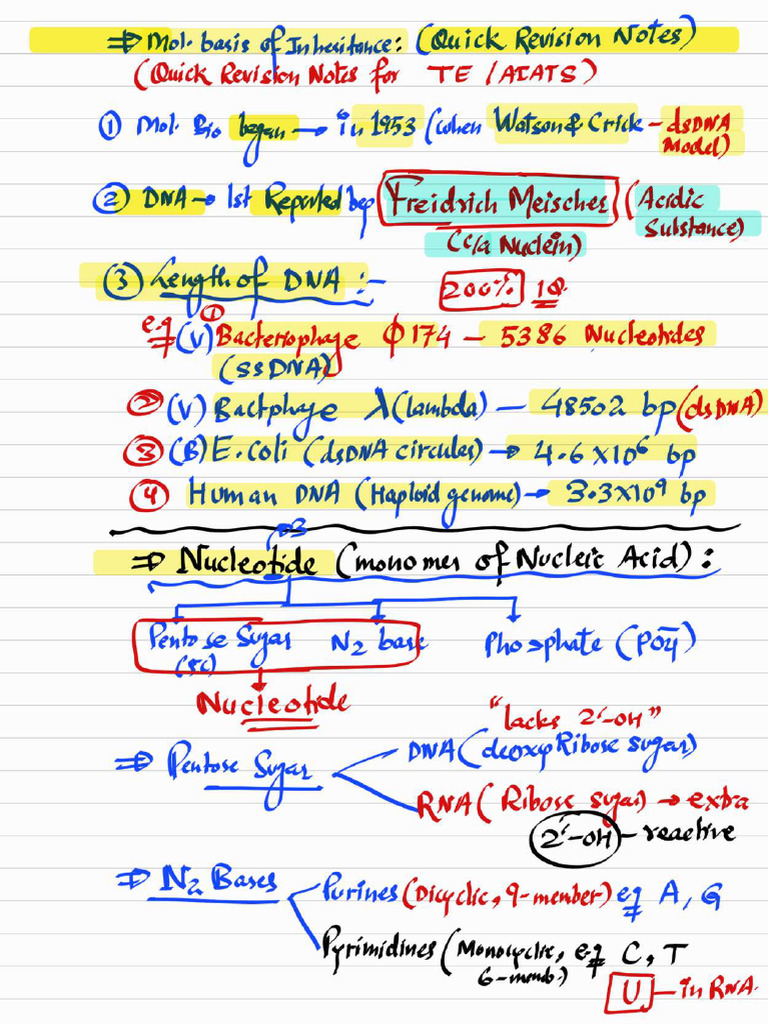 ⇒ Mol. basis of Inheritance: (Quick Revision Notes)
(Quick Revision Notes for TE / AIATS)
① Mol. Bio began → in 1953 (when Watson & Crick - dsDNA Model)
② DNA → 1st Reported by Freidrich Meischer (Acidic Substance)
(c/a Nuclein)
③ Length of DNA :-
200% 1Q
e.g ① (V) Bacteriophage ϕ174 - 5386 Nucleotides
(ssDNA)
② (V) Bactphage λ(lambda) - 48502 bp (dsDNA)
③ (B) E.coli (dsDNA circules) → 4.6×10⁶ bp
④ Human DNA (Haploid genome) → 3.3×10⁹ bp
→3
⇒ Nucleotide (monomer of Nucleic Acid) :
Pentose Sugar N2 base Phosphate (PO4⁻)
(5C)
Nucleotide
"lacks 2'-OH"
⇒ Pentose Sugar DNA (deoxy Ribose sugar)
RNA (Ribose sugar) → extra
2'-OH - reactive
⇒ N2 Bases Purines (Dicyclic, 9-member) eg A, G
Pyrimidines (Monocyclic, eg C, T
6-memb.)
U - in RNA.